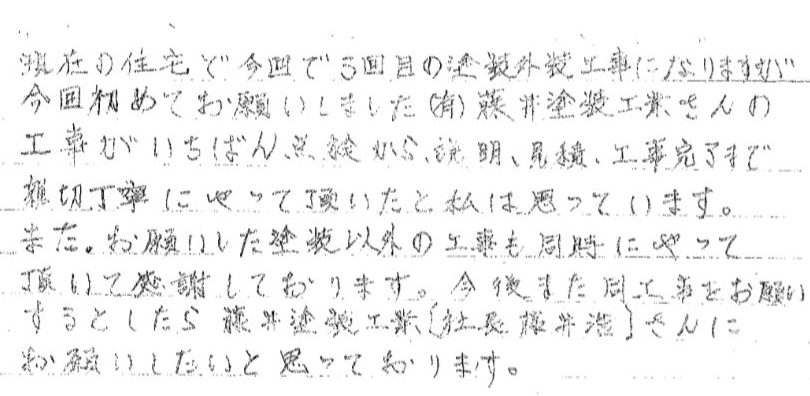 現在の住宅で今回で3回目の塗装外装工事になりますが
今回初めてお願いしました(有)藤井塗装工業さんの
工事がいちばん、点検から、説明、見積、工事完了まで
親切丁寧にやって頂いたと私は思っています。
また。お願いした塗装以外の工事も同時にやって
頂いて感謝しております。今後また同工事をお願い
するとしたら藤井塗装工業〔社長藤井浩〕さんに
お願いしたいと思っております。